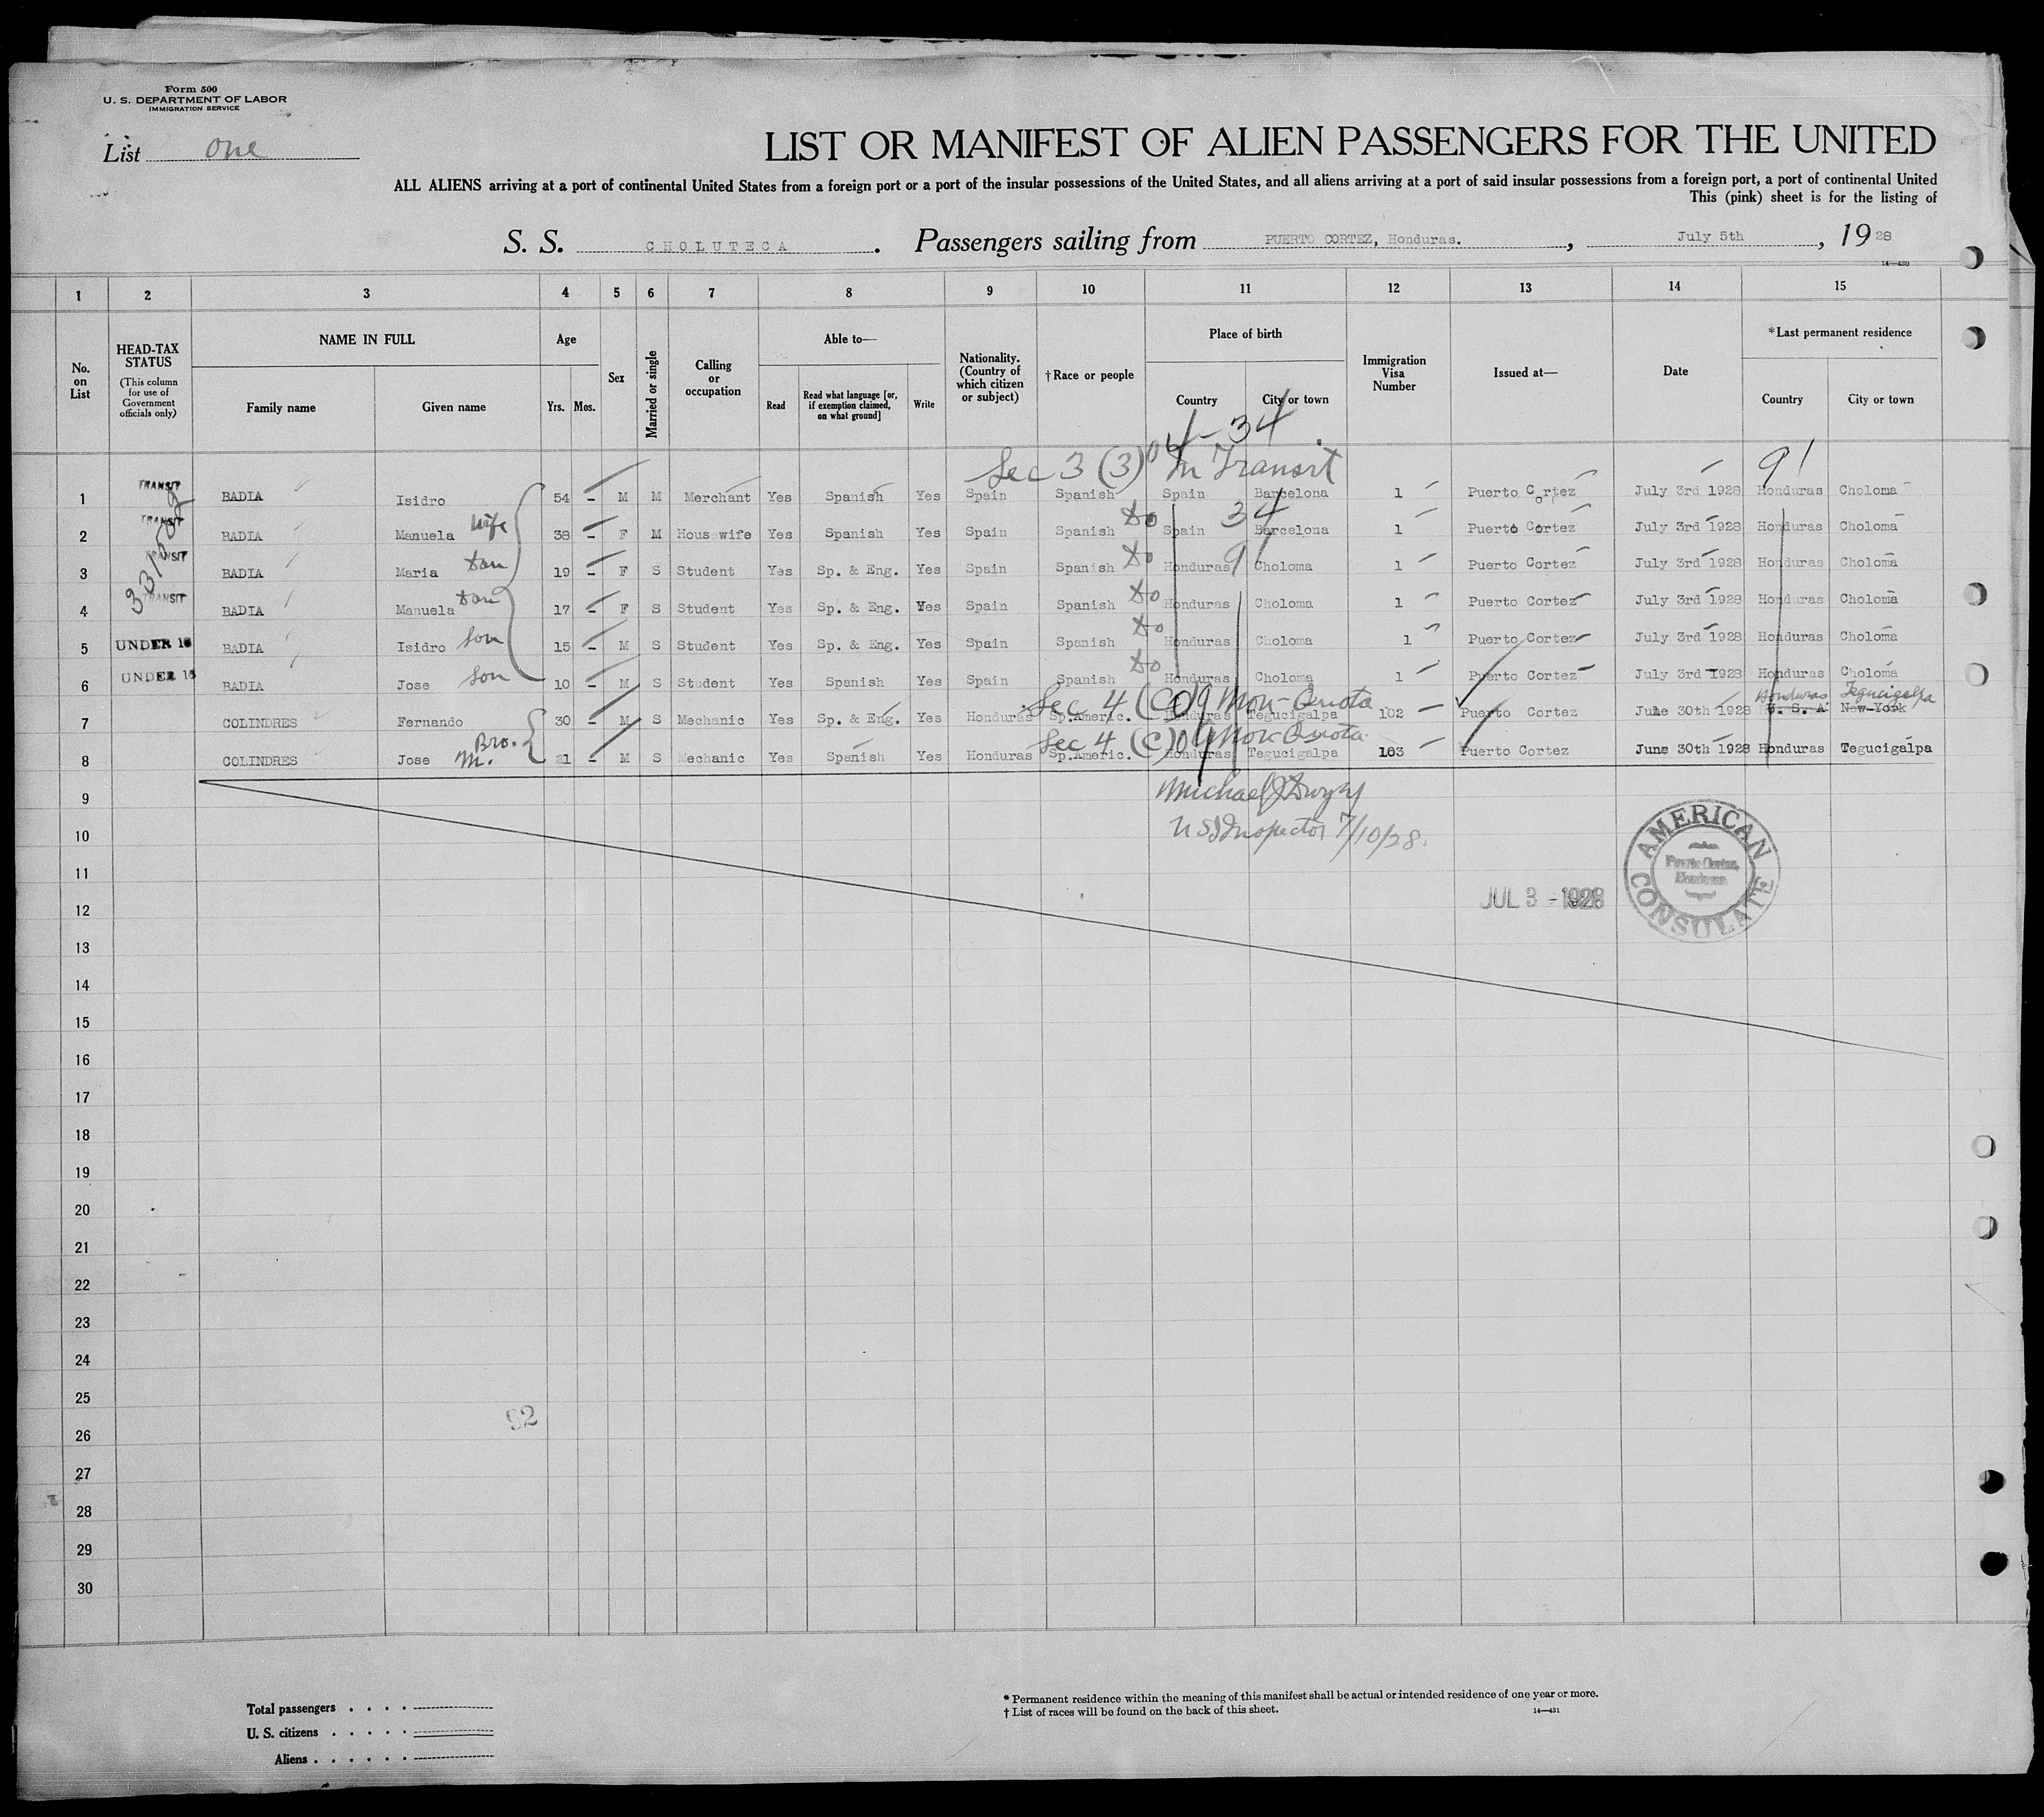 Form 500
U. S. DEPARTMENT OF LABOR
IMMIGRATION SERVICE
List one
LIST OR MANIFEST OF ALIEN PASSENGERS FOR THE UNITED
ALL ALIENS arriving at a port of continental United States from a foreign port or a port of the insular possessions of the United States, and all aliens arriving at a port of said insular possessions from a foreign port, a port of continental United
This (pink) sheet is for the listing of
S. S. CHOLUTECA. Passengers sailing from PUERTO CORTEZ, Honduras., July 5th, 1928
14—430
1 2 3 4 5 6 7 8 9 10 11 12 13 14 15
No. on List
HEAD-TAX STATUS (This column for use of Government officials only)
NAME IN FULL
Family name Given name
Age
Yrs. Mos.
Sex
Married or single
Calling or occupation
Able to—
Read
Read what language [or, if exemption claimed, on what ground]
Write
Nationality. (Country of which citizen or subject)
†Race or people
Place of birth
Country City or town
Immigration Visa Number
Issued at—
Date
*Last permanent residence
Country City or town
4-34
Sec 3 (3) In Transit 91
1 TRANSIT BADIA Isidro 54 - M M Merchant Yes Spanish Yes Spain Spanish Spain Barcelona 1 Puerto Cortez July 3rd 1928 Honduras Choloma
2 TRANSIT BADIA Manuela wife 38 - F M Housewife Yes Spanish Yes Spain Spanish Do Spain 34 Barcelona 1 Puerto Cortez July 3rd 1928 Honduras Choloma
3 TRANSIT BADIA Maria Dau 19 - F S Student Yes Sp. & Eng. Yes Spain Spanish Do Honduras 91 Choloma 1 Puerto Cortez July 3rd 1928 Honduras Choloma
4 TRANSIT BADIA Manuela Dau 17 - F S Student Yes Sp. & Eng. Yes Spain Spanish Do Honduras Choloma 1 Puerto Cortez July 3rd 1928 Honduras Choloma
5 UNDER 16 BADIA Isidro Son 15 - M S Student Yes Sp. & Eng. Yes Spain Spanish Do Honduras Choloma 1 Puerto Cortez July 3rd 1928 Honduras Choloma
6 UNDER 16 BADIA Jose Son 10 - M S Student Yes Spanish Yes Spain Spanish Do Honduras Choloma 1 Puerto Cortez July 3rd 1928 Honduras Choloma
Sec 4 (C) Non-Quota Honduras Tegucigalpa
7 COLINDRES Fernando 30 - M S Mechanic Yes Sp. & Eng. Yes Honduras Sp.Americ. Honduras Tegucigalpa 102 Puerto Cortez June 30th 1928 U. S. A New-York
Sec 4 (C) Non-Quota
8 COLINDRES Jose M. Bro. 21 - M S Mechanic Yes Spanish Yes Honduras Sp.Americ. Honduras Tegucigalpa 103 Puerto Cortez June 30th 1928 Honduras Tegucigalpa
9
Michael J Dwyer
10
US Inspector 7/10/28.
11
AMERICAN CONSULATE
Puerto Cortez, Honduras.
JUL 3 - 1928
12
13
14
15
16
17
18
19
20
21
22
23
24
25
92
26
27
28
29
30
Total passengers
U. S. citizens
Aliens
* Permanent residence within the meaning of this manifest shall be actual or intended residence of one year or more.
† List of races will be found on the back of this sheet.
14—431